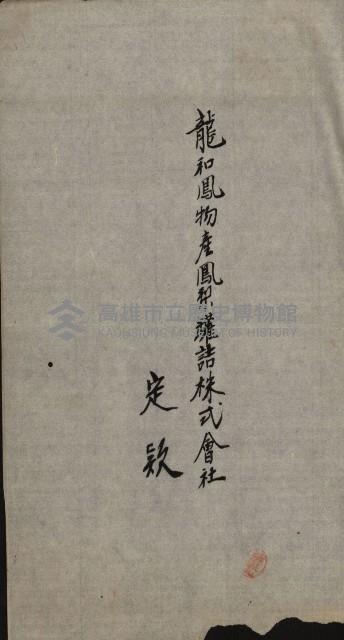 龍和鳳物產鳳梨罐詰株式會社
定欵
高雄市立歷史博物館
KAOHSIUNG MUSEUM OF HISTORY